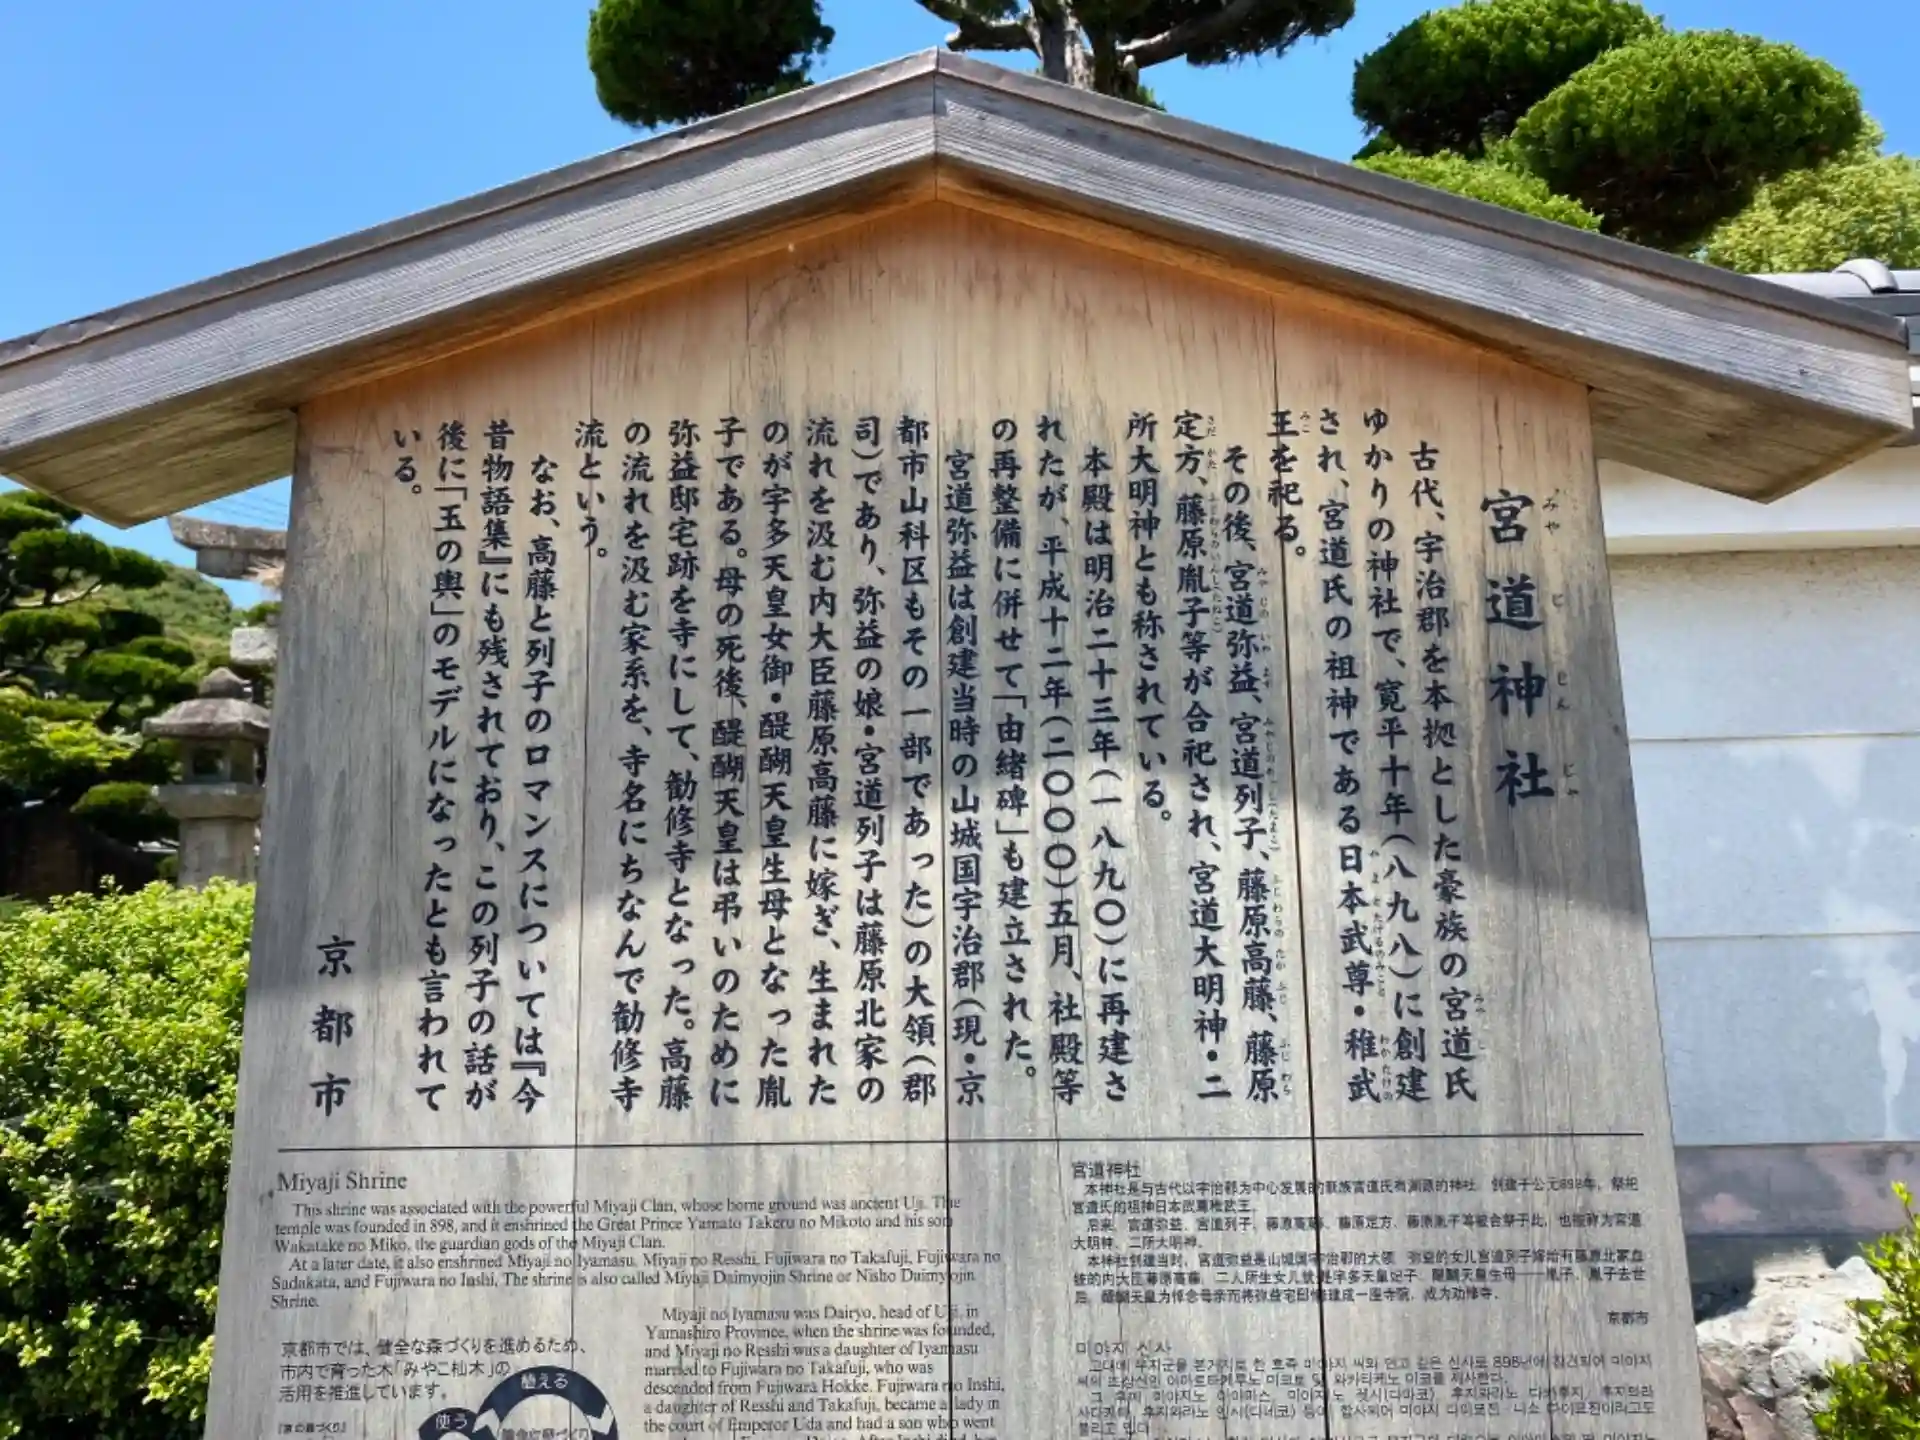 宮道神社
古代、宇治郡を本拠とした豪族の宮道氏
ゆかりの神社で、寛平十年(八九八)に創建
され、宮道氏の祖神である日本武尊・稚武
王を祀る。
その後、宮道弥益、宮道列子、藤原高藤、藤原
定方、藤原胤子等が合祀され、宮道大明神・二
所大明神とも称されている。
本殿は明治二十三年(一八九〇)に再建さ
れたが、平成十二年(二〇〇〇)五月、社殿等
の再整備に併せて「由緒碑」も建立された。
宮道弥益は創建当時の山城国宇治郡(現・京
都市山科区もその一部であった)の大領(郡
司)であり、弥益の娘・宮道列子は藤原北家の
流れを汲む内大臣藤原高藤に嫁ぎ、生まれた
のが宇多天皇女御・醍醐天皇生母となった胤
子である。母の死後、醍醐天皇は弔いのために
弥益邸宅跡を寺にして、勧修寺となった。高藤
の流れを汲む家系を、寺名にちなんで勧修寺
流という。
なお、高藤と列子のロマンスについては『今
昔物語集』にも残されており、この列子の話が
後に「玉の輿」のモデルになったとも言われて
いる。
京都市
Miyaji Shrine
This shrine was associated with the powerful Miyaji Clan, whose home ground was ancient Uji. The
temple was founded in 898, and it enshrined the Great Prince Yamato Takeru no Mikoto and his son
Wakatake no Miko, the guardian gods of the Miyaji Clan.
At a later date, it also enshrined Miyaji no Iyamasu, Miyaji no Resshi, Fujiwara no Takafuji, Fujiwara no
Sadakata, and Fujiwara no Inshi. The shrine is also called Miyaji Daimyojin Shrine or Nisho Daimyojin
Shrine.
Miyaji no Iyamasu was Dairyo, head of Uji, in
Yamashiro Province, when the shrine was founded,
and Miyaji no Resshi was a daughter of Iyamasu
married to Fujiwara no Takafuji, who was
descended from Fujiwara Hokke. Fujiwara no Inshi,
a daughter of Resshi and Takafuji, became a lady in
the court of Emperor Uda and had a son who went
京都市では、健全な森づくりを進めるため、
市内で育った木「みやこ杣木」の
活用を推進しています。
植える
使う
宮道神社
本神社是与古代以宇治郡为中心发展的豪族宫道氏有渊源的神社。创建于公元898年，祭祀
宫道氏的祖神日本武尊稚武王。
后来，宫道弥益、宫道列子、藤原高藤、藤原定方、藤原胤子等被合祭于此，也被称为宫道
大明神、二所大明神。
本神社创建当时，宫道弥益是山城国宇治郡的大领。弥益的女儿宫道列子嫁给有藤原北家血
统的内大臣藤原高藤，二人所生女儿就是宇多天皇妃子、醍醐天皇生母——胤子。胤子去世
后，醍醐天皇为悼念母亲而将弥益宅邸修建成一座寺院，成为劝修寺。
京都市
미야지 신사